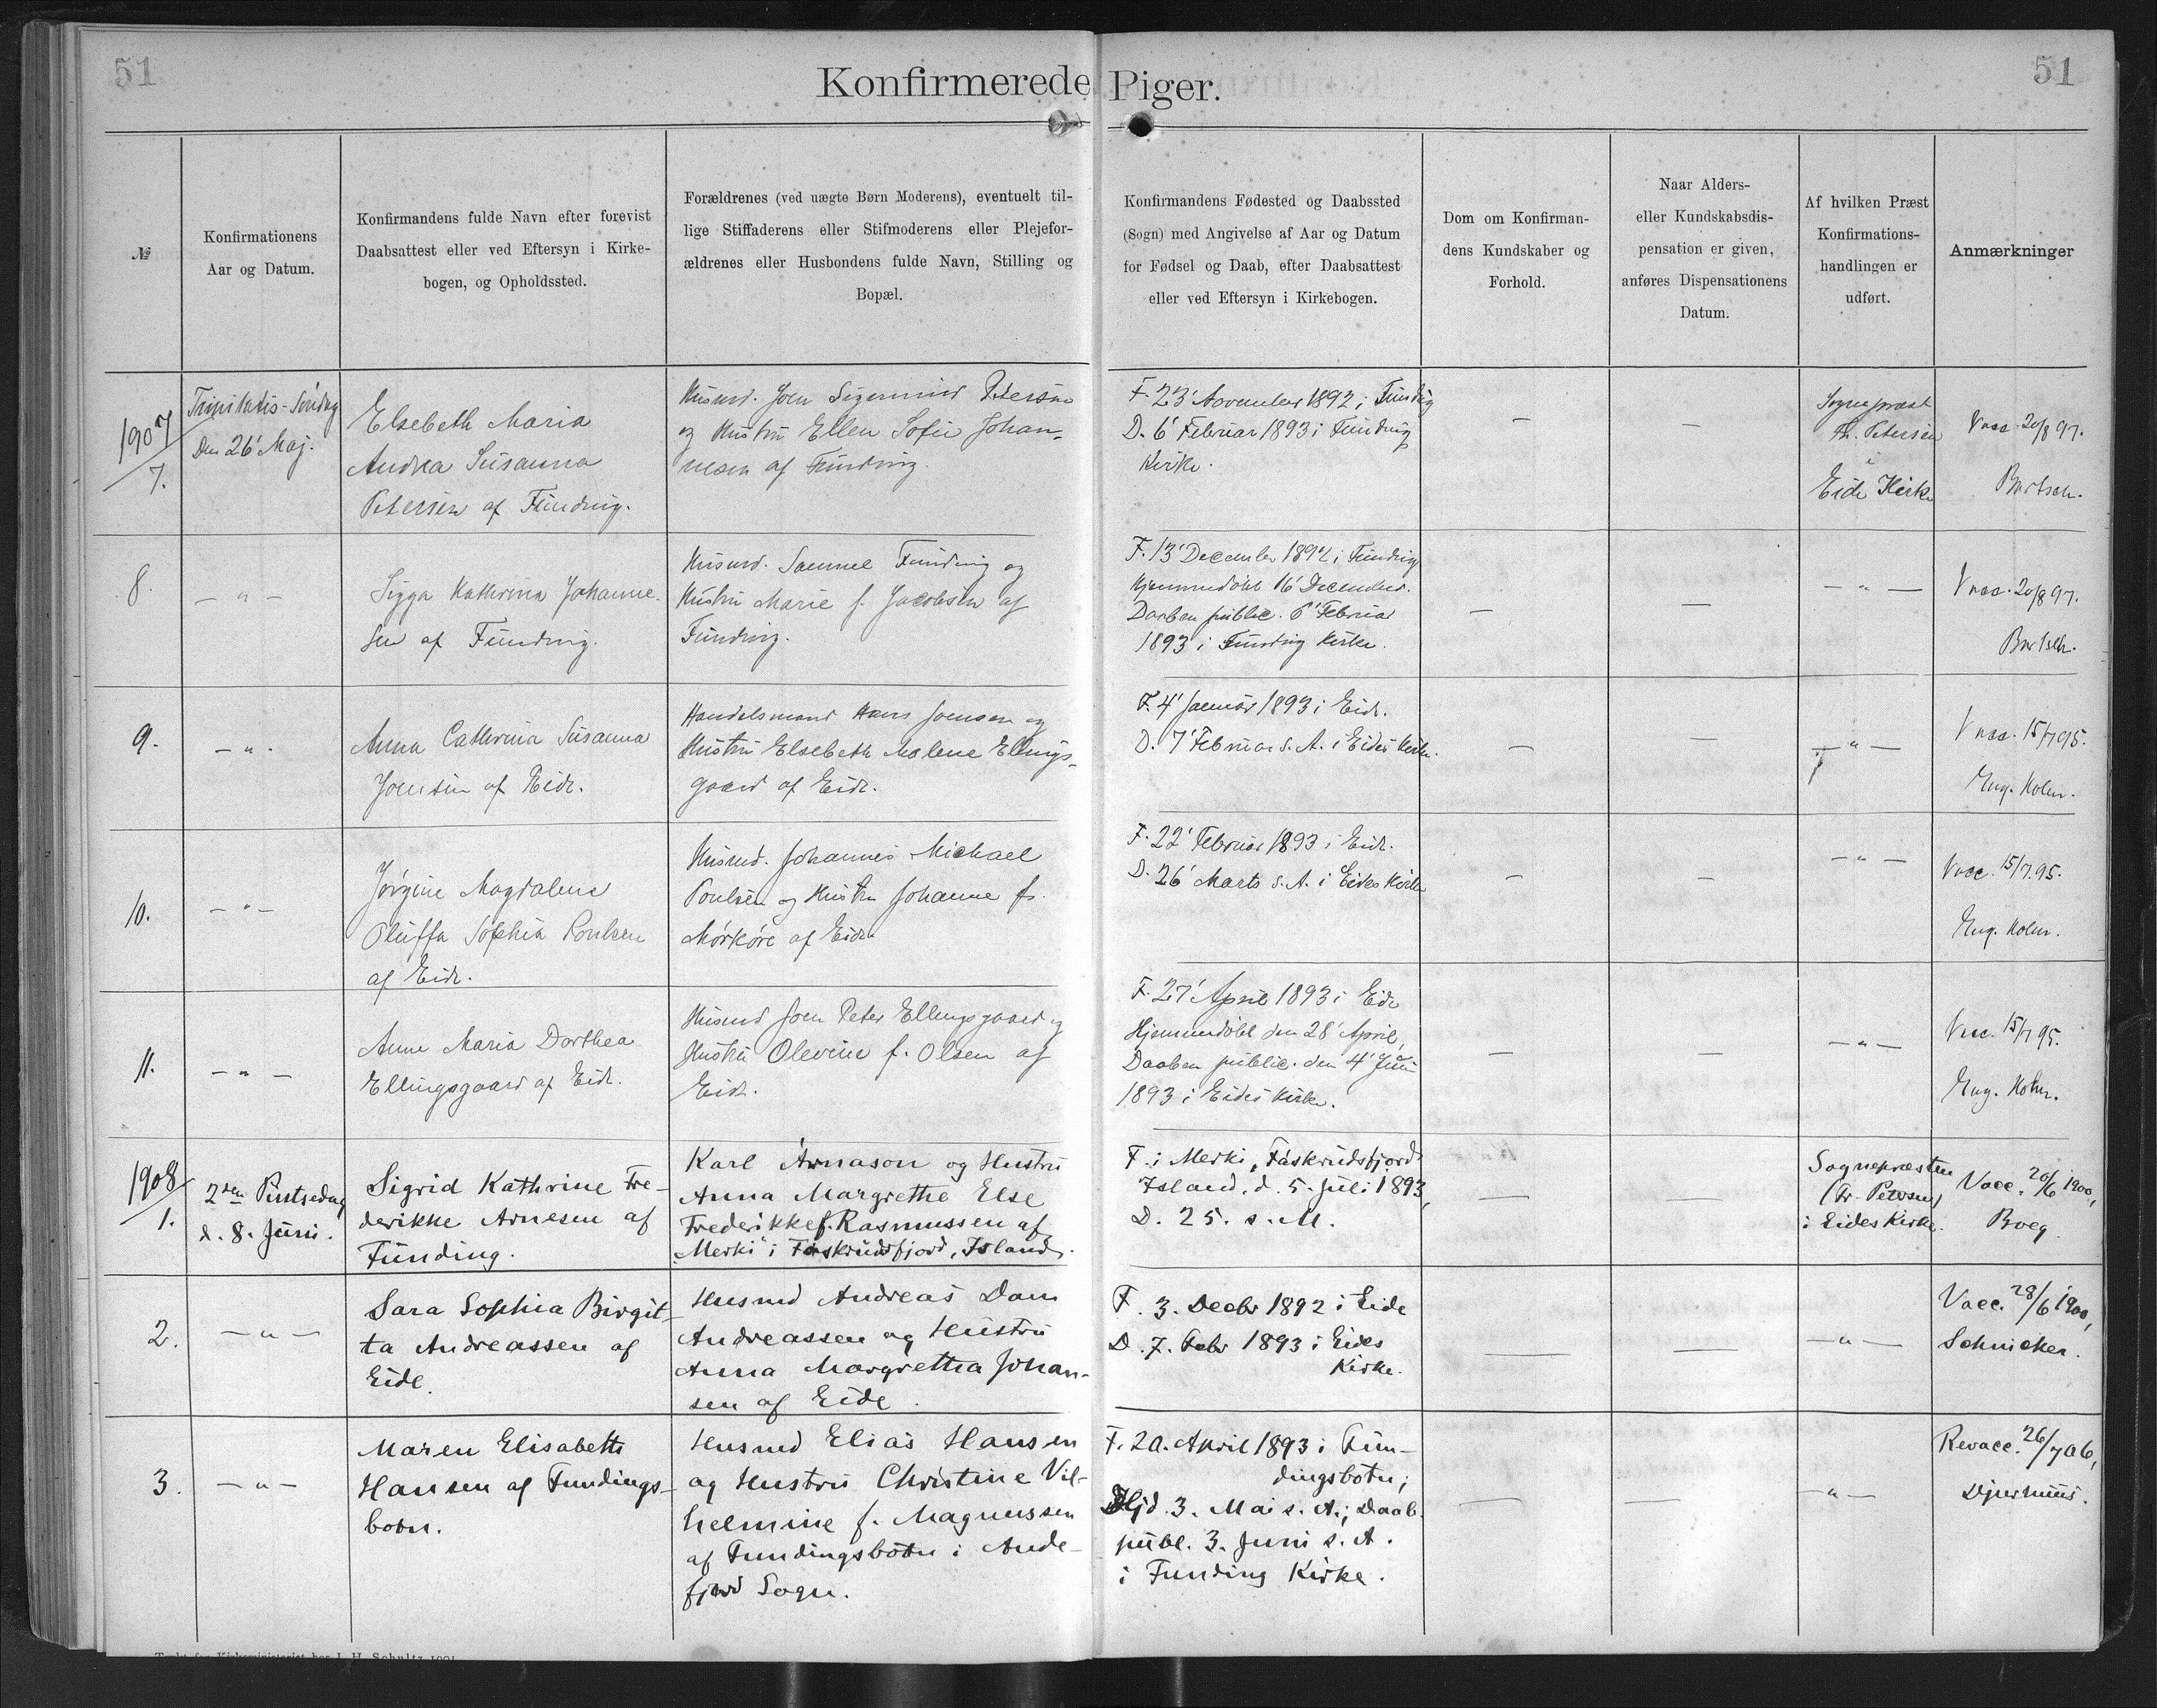 51
Konfirmerede Piger.
51
№
Konfirmationens
Aar og Datum.
Konfirmandens fulde Navn efter forevist
Daabsattest eller ved Eftersyn i Kirke-
bogen, og Opholdssted.
Forældrenes (ved uægte Børn Moderens), eventuelt til-
lige Stiffaderens eller Stifmoderens eller Plejefor-
ældrenes eller Husbondens fulde Navn, Stilling og
Bopæl.
Konfirmandens Fødested og Daabssted
(Sogn) med Angivelse af Aar og Datum
for Fødsel og Daab, efter Daabsattest
eller ved Eftersyn i Kirkebogen.
Dom om Konfirman-
dens Kundskaber og
Forhold.
Naar Alders-
eller Kundskabsdis-
pensation er given,
anføres Dispensationens
Datum.
Af hvilken Præst
Konfirmations-
handlingen er
udført.
Anmærkninger
1907
7.
Trinitatis-Søndag
Den 26' Maj.
Elsebeth Maria
Andrea Susanna
Petersen af Funding.
Husmd. Joen Sigmund Petersen
og Hustru Ellen Sofie Johan-
nesen af Funding.
F. 23' November 1892 i Funding
D. 6' Februar 1893 i Funding
Kirke.
—
—
Sognepræst
Fr. Petersen
i
Eide Kirke
Vacc. 20/8 97.
Bartsch.
8.
— " —
Sigga Kathrina Johanne-
sen af Funding.
Husmd. Samuel Funding og
Hustru Marie f. Jacobsen af
Funding.
F. 13' December 1892 i Funding
Hjemmedøbt 16' December.
Daaben public. 6' Februar
1893 i Funding Kirke.
—
—
— " —
Vacc. 20/8 97.
Bartsch.
9.
— " —
Anna Cathrina Susanna
Joensen af Eide.
Handelsmand Hans Joensen og
Hustru Elsebeth Malene Ellings-
gaard af Eide.
F. 4' Januar 1893 i Eide.
D. 7' Februar s. A. i Eides Kirke.
—
—
— " —
Vacc. 15/7 95.
Eug. Holm.
10.
— " —
Jørgine Magdalene
Oluffa Sophia Poulsen
af Eide.
Husmd. Johannes Michael
Poulsen og Hustru Johanne f.
Mørkøre af Eide
F. 22' Februar 1893 i Eide.
D. 26' Marts s. A. i Eides Kirke
—
—
— " —
Vacc. 15/7. 95.
Eug. Holm.
11.
— " —
Anne Maria Dorthea
Ellingsgaard af Eide.
Husmd Joen Peter Ellingsgaard og
Hustru Olevine f. Olsen af
Eide.
F. 27' April 1893 i Eide
Hjemmedøbt den 28' April,
Daaben public. den 4' Juni
1893 i Eides Kirke.
—
—
— " —
Vacc. 15/7 95.
Eug. Holm.
1908
1.
2den Pintsedag
d. 8. Juni.
Sigrid Kathrine Fre-
derikke Arnesen af
Funding.
Karl Árnason og Hustru
Anna Margrethe Else
Frederikke f. Rasmussen af
"Merki" i Fáskrudsfjord, Island.
F. i Merki, Fáskrudsfjord
Island, d. 5. Juli 1893,
D. 25. s. M.
—
—
Sognepræsten
(Fr. Petersen)
i Eides Kirke.
Vacc. 20/6 1900,
Boeg.
2.
— " —
Sara Sophia Birgit-
ta Andreassen af
Eide.
Husmd Andreas Dam
Andreassen og Hustru
Anna Margretha Johan-
sen af Eide.
F. 3. Decbr 1892 i Eide
D. 7. Febr 1893 i Eides
Kirke.
—
—
— " —
Vacc. 28/6 1900,
Schnicker.
3.
— " —
Maren Elisabeth
Hansen af Fundings-
botn.
Husmd Elias Hansen
og Hustru Christine Vil-
helmine f. Magnussen
af Fundingsbotn i Ande-
fjord Sogn.
F. 20. April 1893 i Fun-
dingsbotn;
Hjd. 3. Mai s. A.; Daab.
publ. 3. Juni s. A.
i Funding Kirke.
—
—
— " —
Revacc. 26/7 06,
Djurhuus.